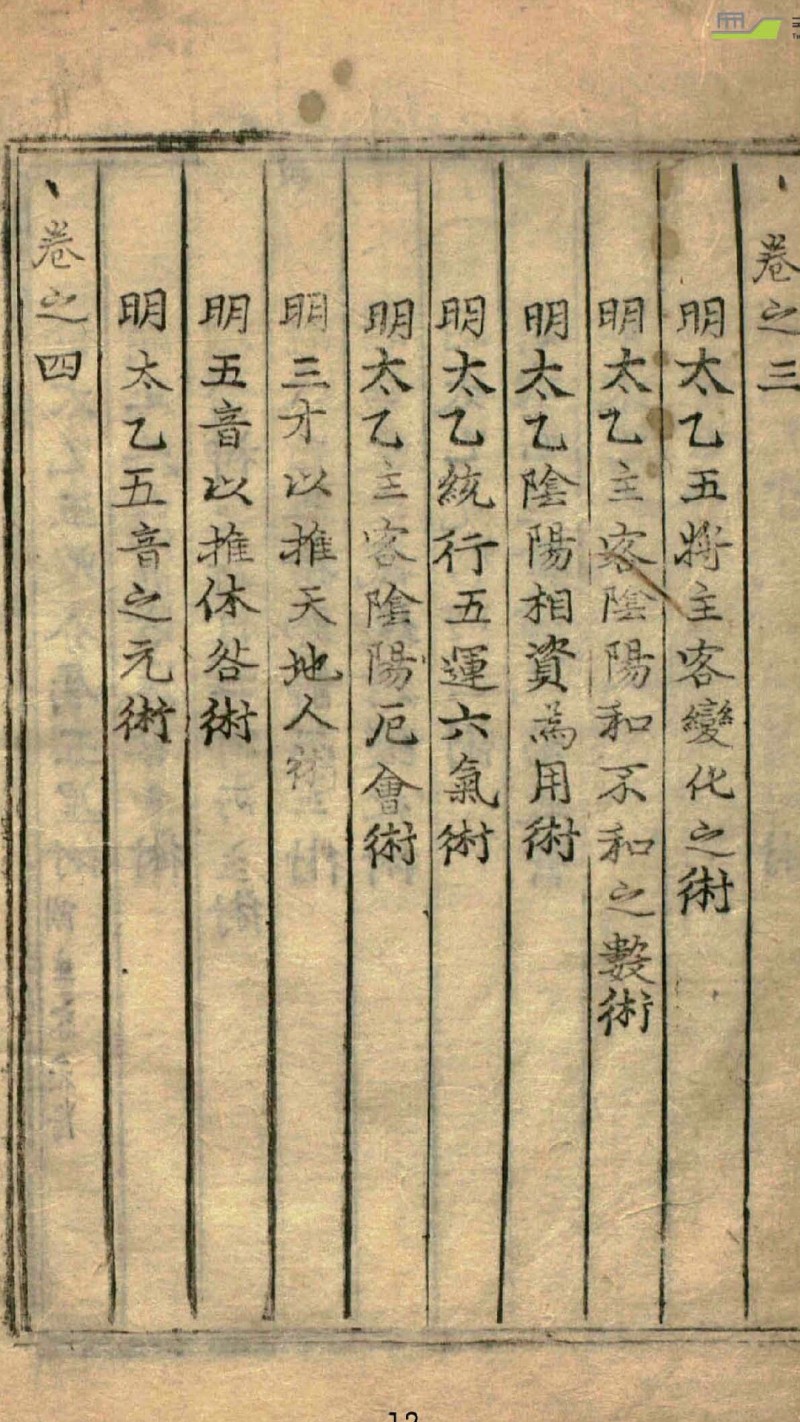 卷之三
明太乙五將主客變化之術
明太乙主客陰陽和不和之數術
明太乙陰陽相資為用術
明太乙統行五運六氣術
明太乙主客陰陽厄會術
明三才以推天地人術
明五音以推休咎術
明太乙五音之元術
卷之四
12